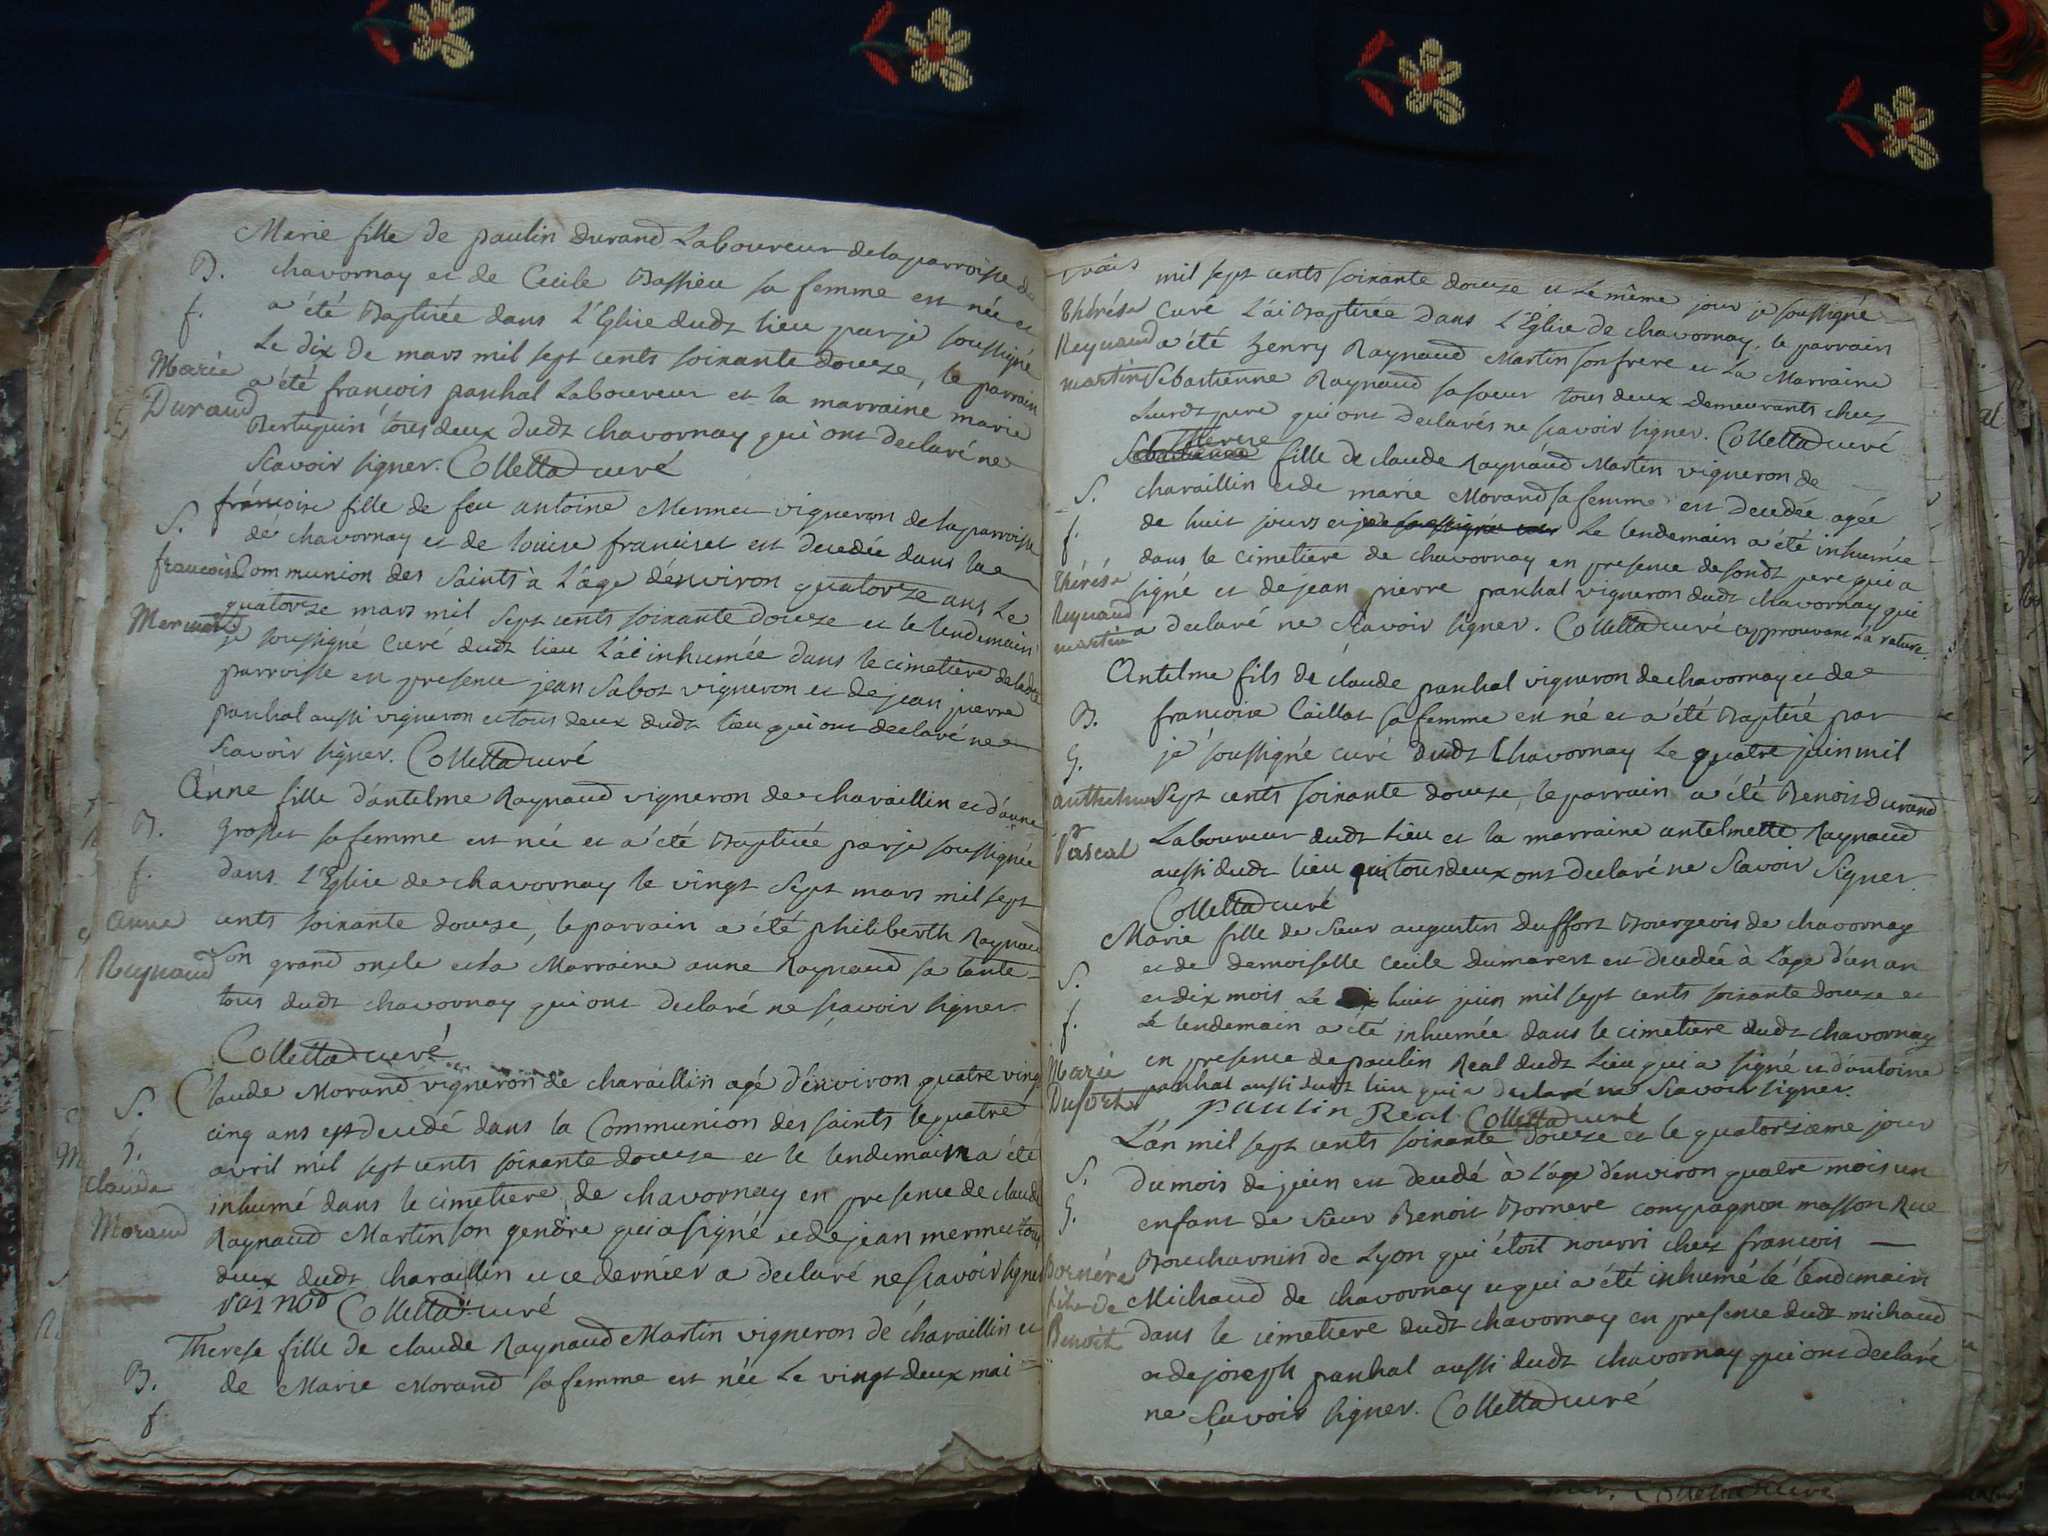 Marie fille de paulin durand Laboureur de la parroisse de
B. chavornay et de Cecile Bassieu sa femme est née et
f. a été Baptisée dans L'Eglise dudt lieu par je soussigné
Le dix de mars mil sept cents soixante douze, le parrain
Marie a été francois paschal Laboureur et la marraine marie
Durand Bertuguin tous deux dudt chavornay qui ont declaré ne
scavoir signer. Colletta curé
francoise fille de feu antoine Mermet vigneron de la parroisse
S. de chavornay et de louise francises est decedée dans la
francoise Communion des Saints à L'âge d'environ quatorze ans Le
quatorze mars mil sept cents soixante douze et le lendemain
Mermet je soussigné curé dudt lieu L'ai inhumée dans le cimetiere de ladte
parroisse en presence jean Sabot vigneron et de jean pierre
paschal aussi vigneron et tous deux dudt lieu qui ont declaré ne
scavoir signer. Colletta curé
Anne fille d'antelme Raynaud vigneron de charaillin et d'anne
B. grosset sa femme est née et a été Baptisée par je soussigné
f. dans L'Eglise de chavornay le vingt sept mars mil sept
anne cents soixante douze, le parrain a été philiberth Raynaud
Reynaud son grand oncle et la Marraine anne Raynaud sa tante
tous dudt chavornay qui ont declaré ne scavoir signer
Colletta curé
Claude Morand vigneron de charaillin agé d'environ quatre vingt
S. cinq ans est decedé dans la Communion des saints le quatre
g. avril mil sept cents soixante douze et le lendemain a été
claude inhumé dans le cimetiere de chavornay en presence de claude
Morand Raynaud Martin son gendre qui a signé et de jean mermet tous
deux dudt charaillin et ce dernier a declaré ne scavoir signer
rai nod Colletta curé
Therese fille de claude Raynaud Martin vigneron de charaillin et
B. de Marie Morand sa femme est née Le vingt deux mai
f.
mil sept cents soixante douze et le même jour je soussigné
thérése curé L'ai Baptisée Dans L'Eglise de chavornay, le parrain
Reynaud a été henry Raynaud Martin son frere et La Marraine
martin Sebastienne Raynaud sa soeur tous deux demeurants chez
Leurdt pere qui ont declarés ne scavoir signer. Colletta curé
Therese
Sebastienne fille de claude Raynaud Martin vigneron de
S. charaillin et de marie Morand sa femme est decedée agée
f. de huit jours et je soussigné curé Le lendemain a été inhumée
dans le cimetiere de chavornay en presence de sondt pere qui a
thérése signé et de jean pierre paschal vigneron dudt chavornay qui
Reynaud
martin a declaré ne scavoir signer. Colletta curé approuvant la rature.
Antelme fils de claude paschal vigneron de chavornay et de
B. francoise Caillat sa femme est né et a été Baptisé par
g. je soussigné curé dudt Chavornay Le quatre juin mil
anthelme Sept cents soixante douze, le parrain a été Benoit Durand
Pascal Laboureur dudt lieu et la marraine antelmette Raynaud
aussi dudt lieu qui tous deux ont declaré ne scavoir signer.
Colletta curé
Marie fille de sieur augustin Duffort Bourgeois de chavornay
S. et de demoiselle cecile dumarest est decedée à L'age d'un an
et dix mois Le huit juin mil sept cents soixante douze et
f. Le lendemain a été inhumée dans le cimetiere dudt chavornay
Marie en presence de paulin Real dudt Lieu qui a signé et d'antoine
Dufort paschal aussi dudt lieu qui a declaré ne scavoir signer.
paulin Real Colletta curé
L'an mil sept cents soixante douze et le quatorzieme jour
S. du mois de juin est decedé à L'age d'environ quatre mois un
g. enfant de sieur Benoit Bornere compagnon masson Rue
Bouchavnin de Lyon qui étoit nourri chez francois
Bornére
fils de Michaud de chavornay et qui a été inhumé le lendemain
Benoit dans le cimetiere dudt chavornay en presence dudt michaud
et de joseph paschal aussi dudt chavornay qui ont declaré
ne scavoir signer. Colletta curé